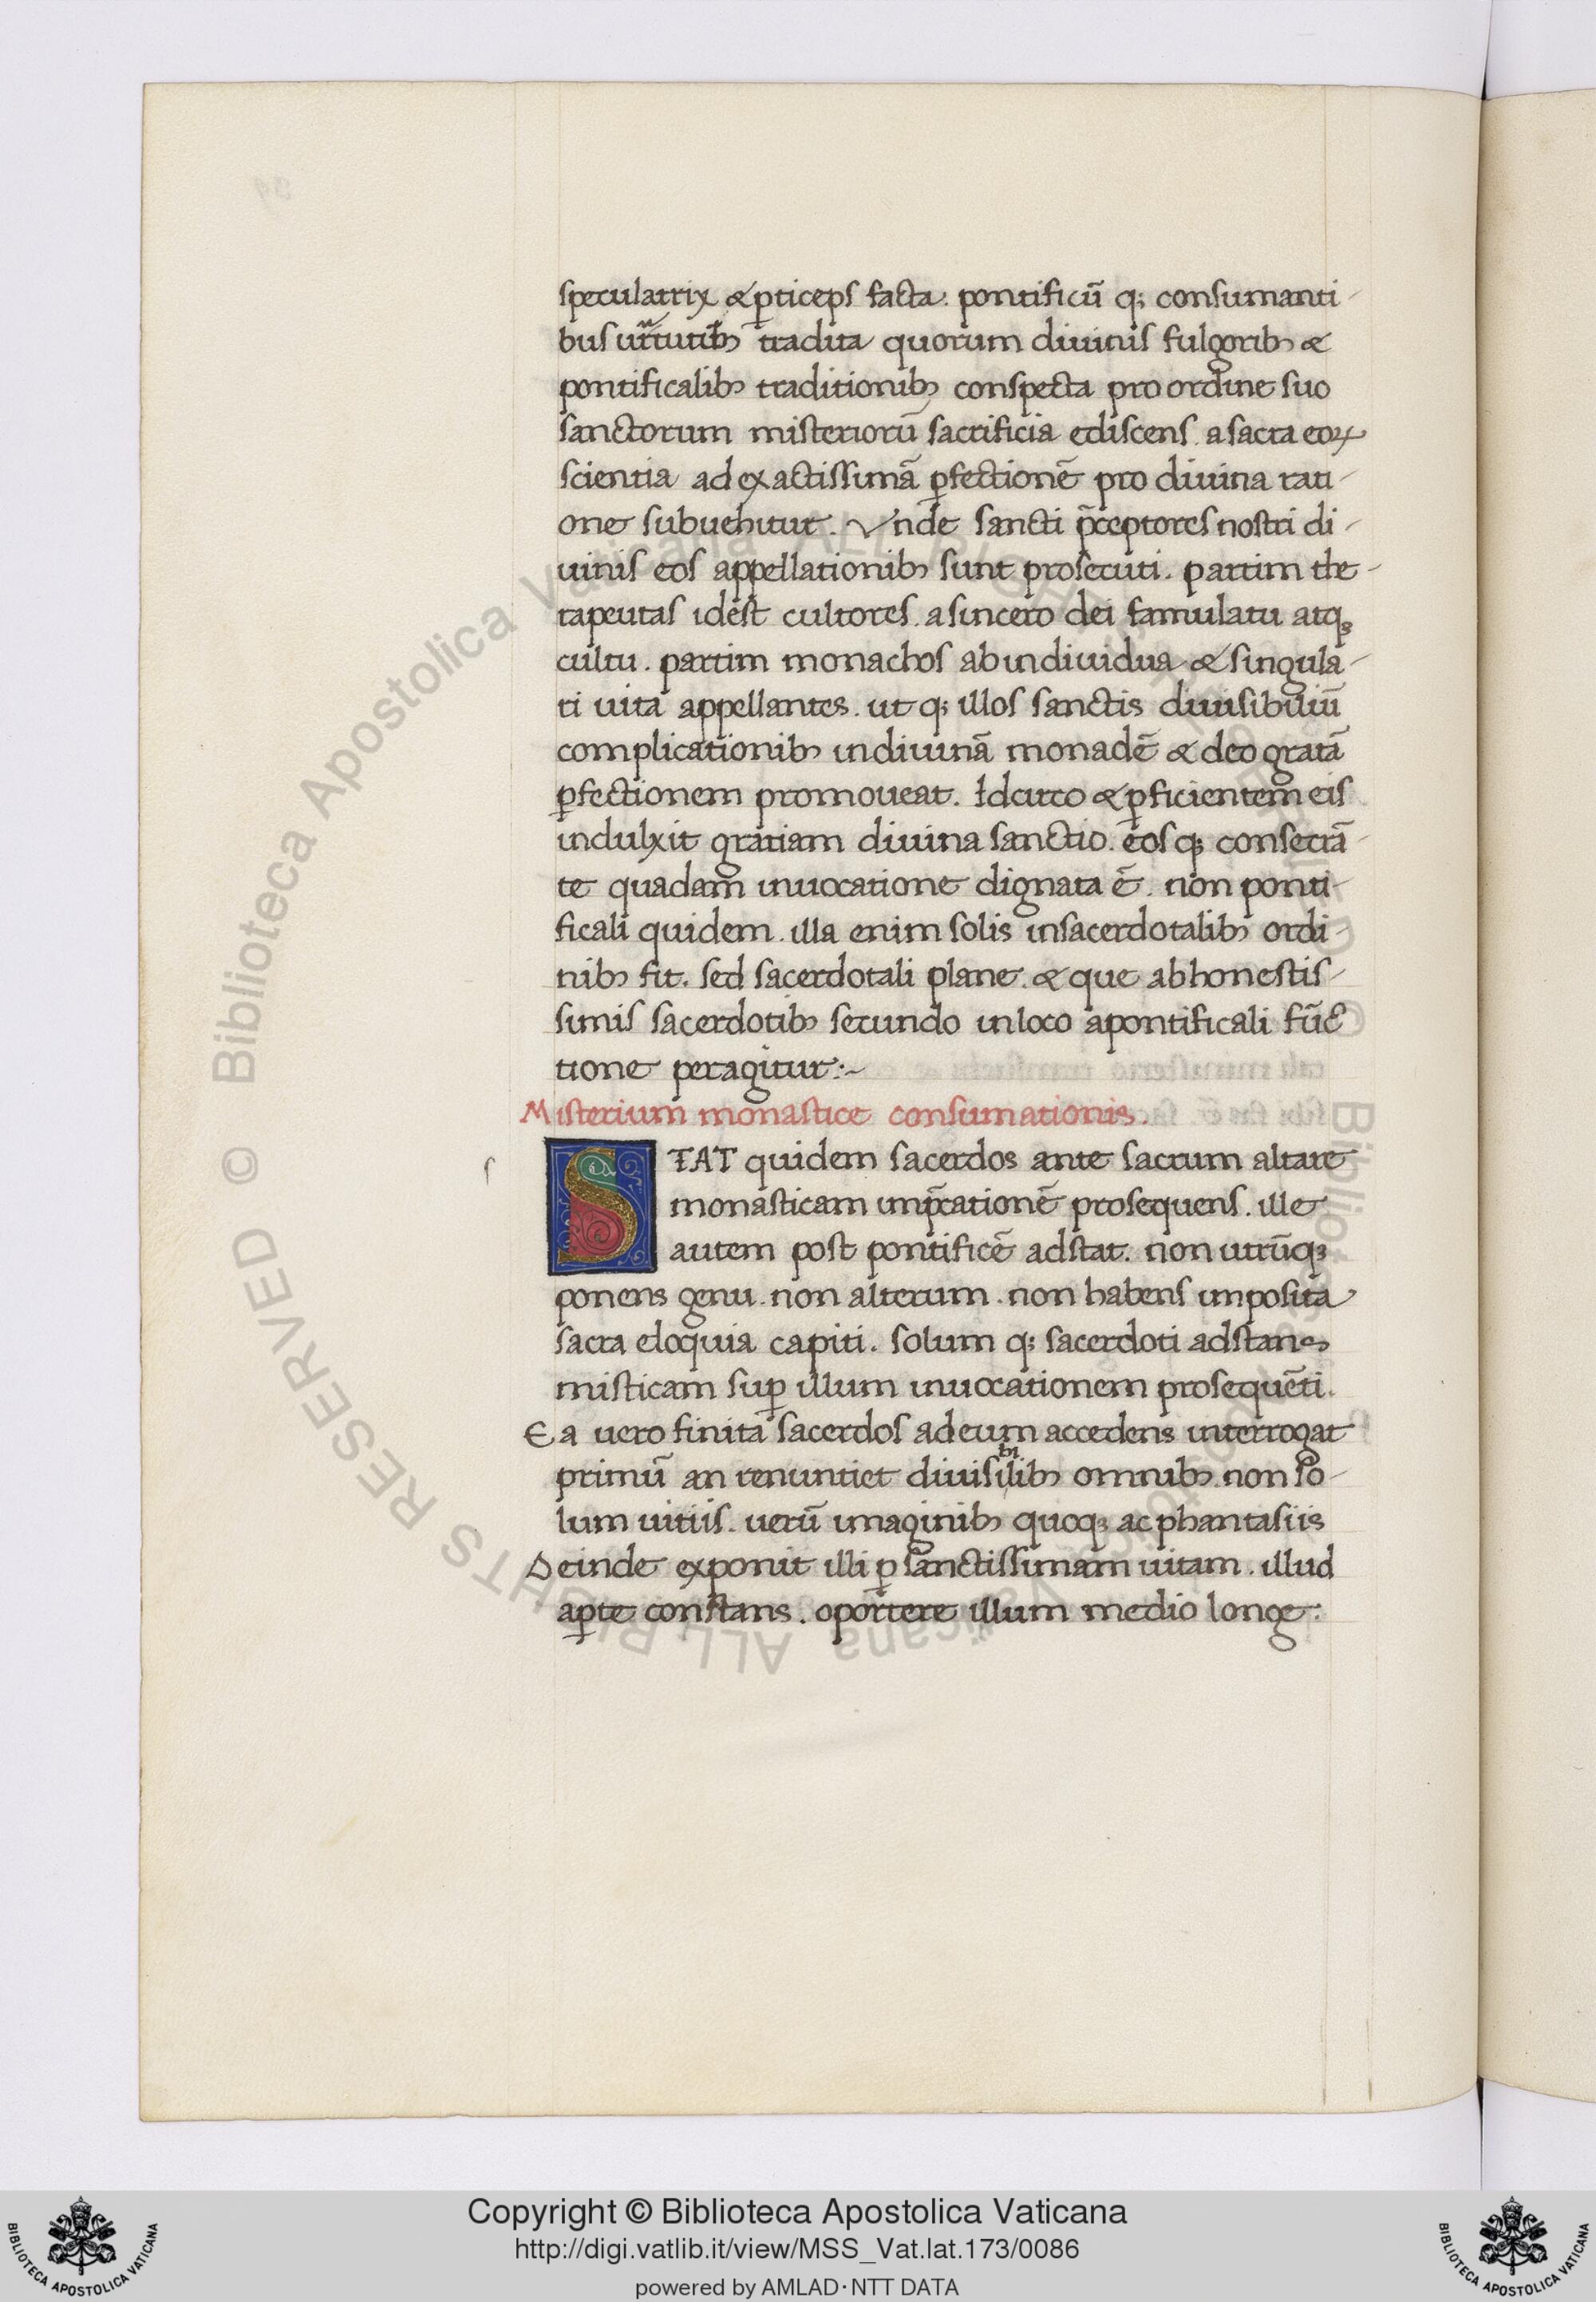 speculatrix & ꝑticeps facta. pontificū q; consumanti-
bus uirtutibꝫ tradita quorum diuinis fulgoribꝫ &
pontificalibꝫ traditionibꝫ conspecta pro ordine suo
sanctorum misteriorū sacrificia ediscens. a sacra eoꝝ
scientia ad exactissimā ꝑfectionē pro diuina rati-
one subuehitur. Vnde sancti p̄ceptores nostri di-
uinis eos appellationibꝫ sunt prosecuti. partim the-
rapeutas idest cultores. a sincero dei famulatu atqꝫ
cultu. partim monachos ab indiuidua & singula-
ri uita appellantes. ut q; illos sanctis diuisibiliū
complicationibꝫ in diuinā monadē & deo gratā
ꝑfectionem promoueat. Idcirco & ꝑficientem eis
indulxit gratiam diuina sanctio. eos q; consecrā-
te quadam inuocatione dignata ē. non ponti-
ficali quidem. illa enim solis in sacerdotalibꝫ ordi-
nibꝫ fit. sed sacerdotali plane. & que ab honestis-
simis sacerdotibꝫ secundo in loco a pontificali fūc
tione peragitur:~
Misterium monastice consumationis.
STAT quidem sacerdos ante sacrum altare
monasticam imp̄cationē prosequens. ille
autem post pontificē adstat. non utrūqꝫ
ponens genu. non alterum. non habens imposita
sacra eloquia capiti. solum q; sacerdoti adstans
misticam suꝑ illum inuocationem prosequēti.
Ea uero finita sacerdos ad eum accedens interrogat
bi
primū an renuntiet diuisilibꝫ omnibꝫ. non so-
lum uitiis. uerū imaginibꝫ quoqꝫ ac phantasiis
Deinde exponit illi ꝑ sanctissimam uitam. illud
aꝑte constans. oportere illum medio longe:
ſ
Copyright © Biblioteca Apostolica Vaticana
http://digi.vatlib.it/view/MSS_Vat.lat.173/0086
powered by AMLAD·NTT DATA
BIBLIOTECA APOSTOLICA VATICANA
BIBLIOTECA APOSTOLICA VATICANA
© Biblioteca Apostolica Vaticana ALL RIGHTS RESERVED